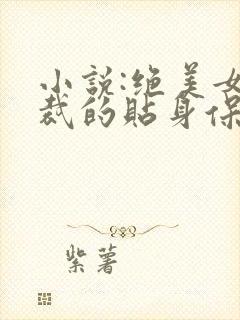 小説:绝美女
裁的貼身保
紫薯